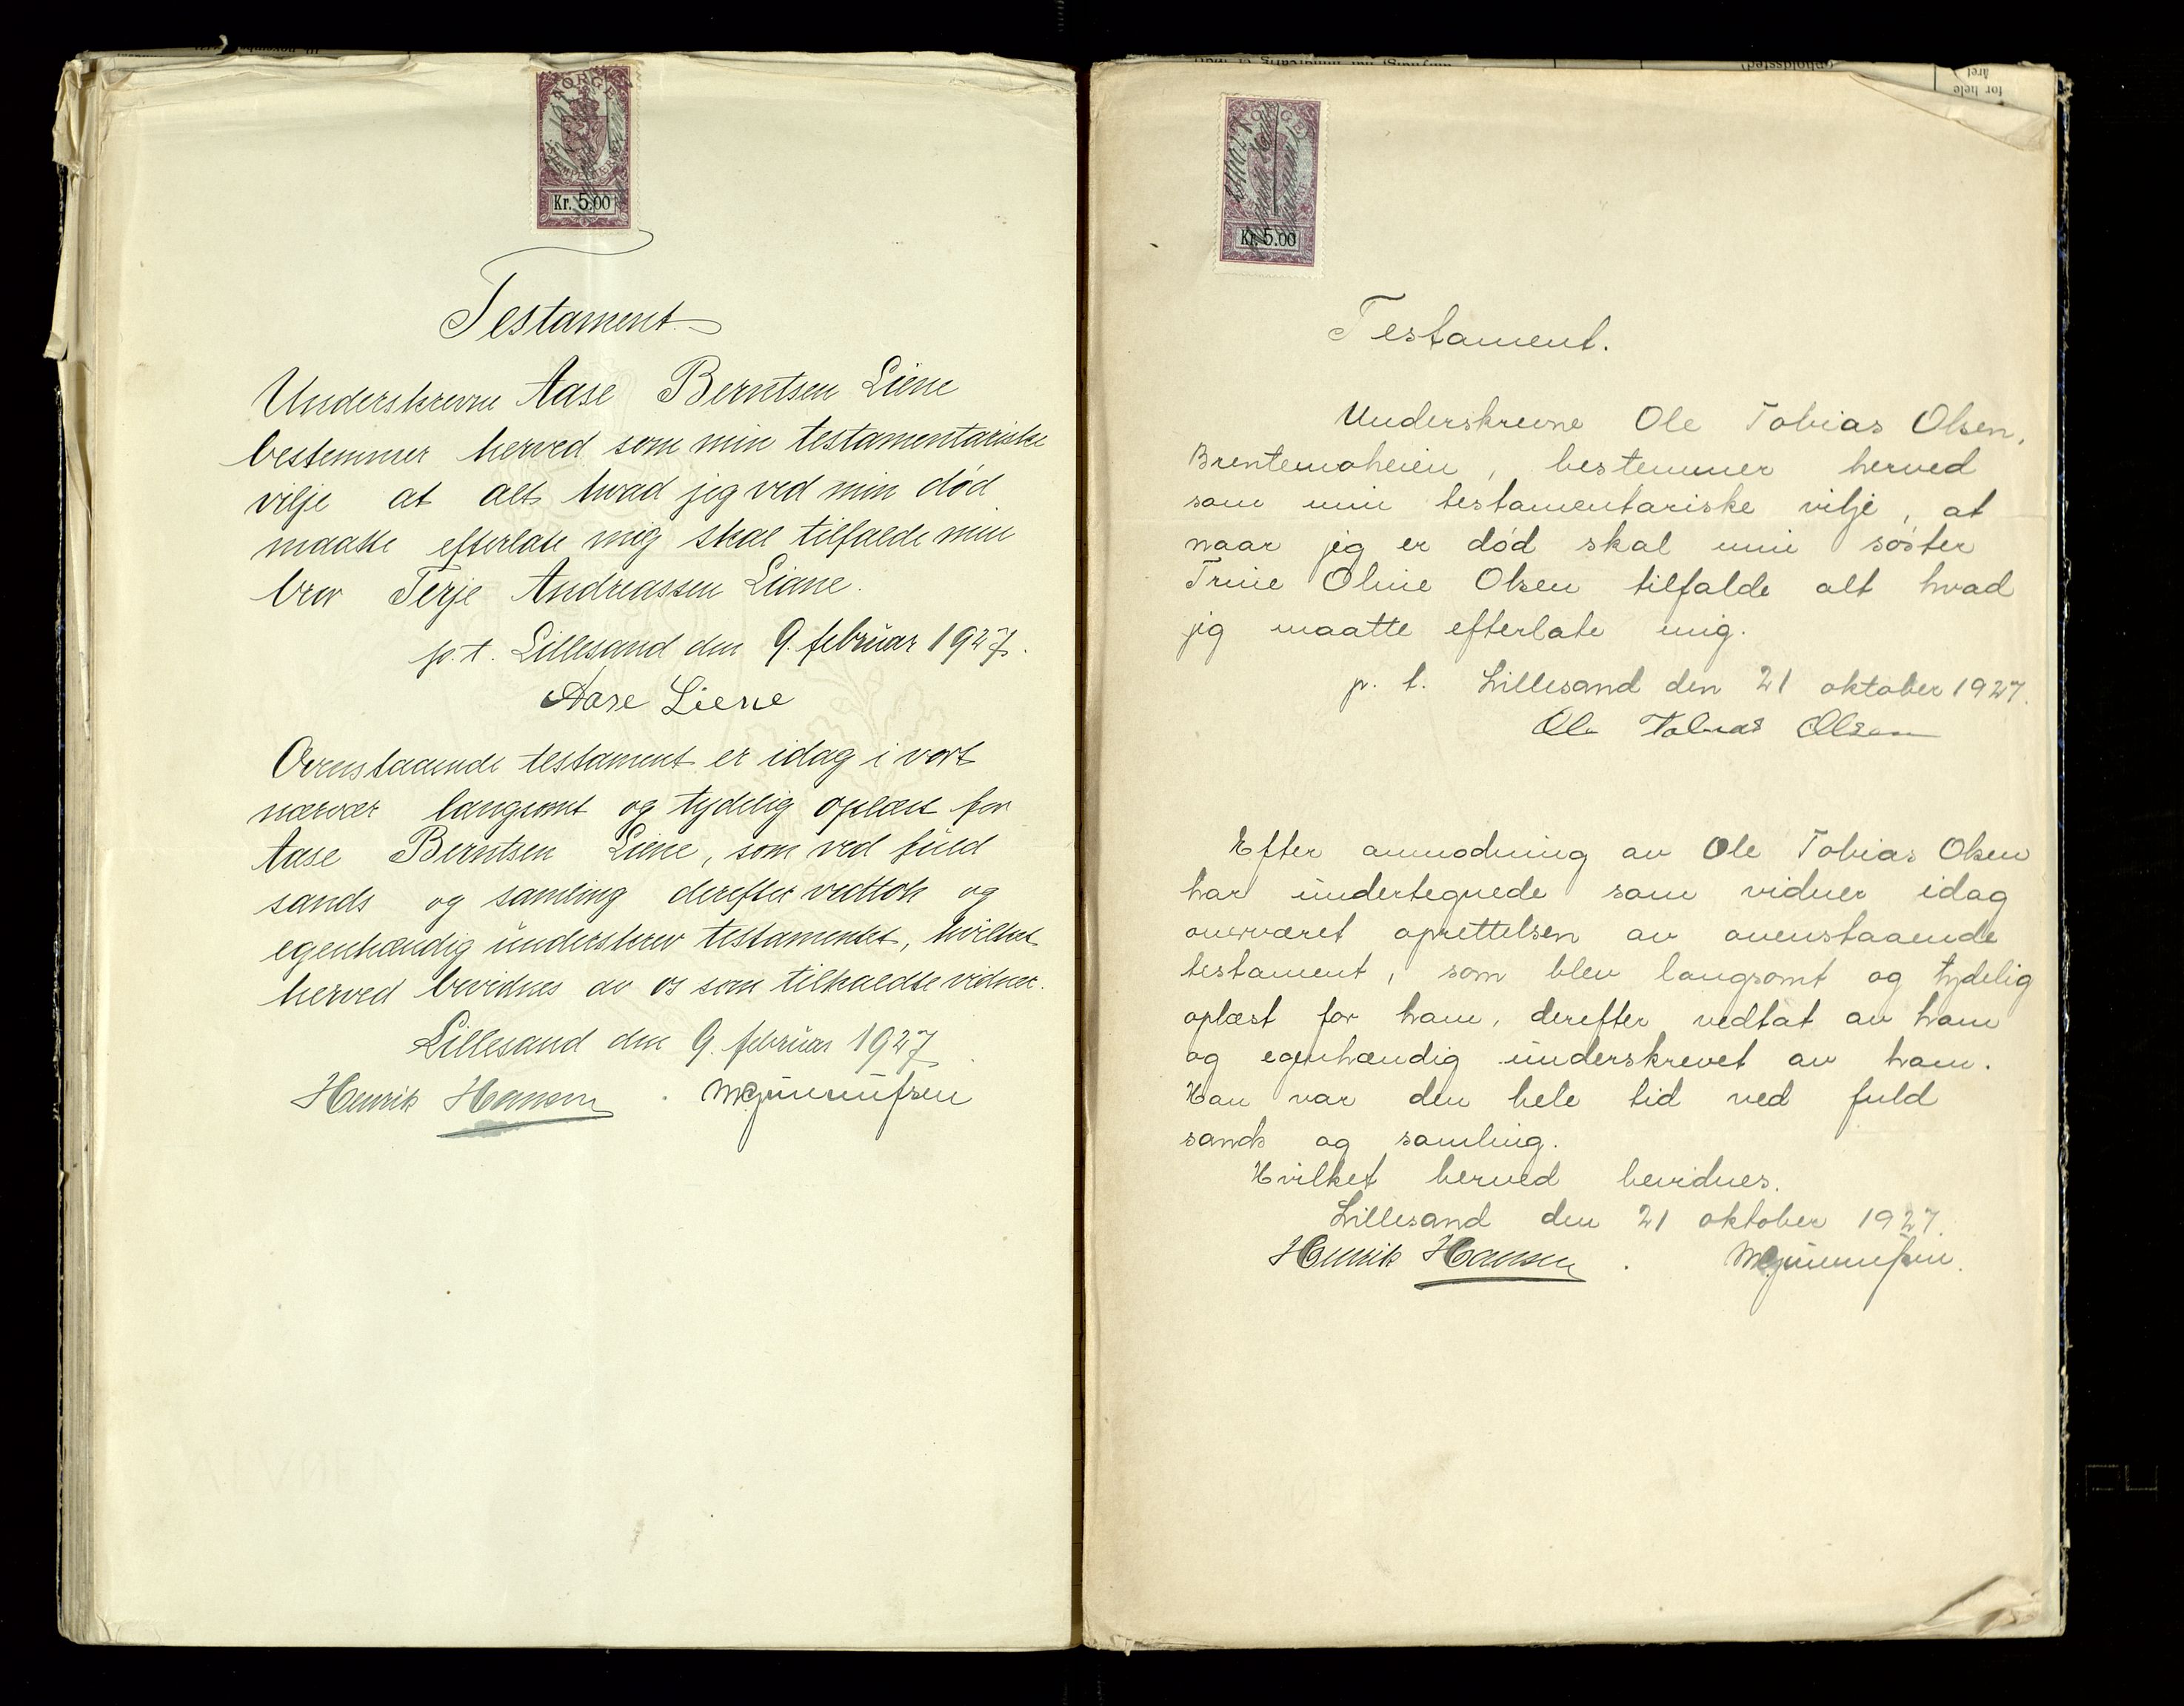 NORGE
Kr. 5.00
Testament.
Underskrevne Aase Berntsen Liene
bestemmer herved som min testamentariske
vilje at alt hvad jeg ved min død
maatte efterlate mig skal tilfalde min
bror Terje Andreassen Liane.
p.t. Lillesand den 9. februar 1927.
Aase Liene
Ovenstaaende testament er idag i vort
nærvær langsomt og tydelig oplæst for
Aase Berntsen Liene, som ved fuld
sands og samling derefter vedtok og
egenhændig underskrev testamentet, hvilket
herved bevidnes av os som tilkaldte vidner.
Lillesand den 9. februar 1927.
Henrik Hansen
NORGE
Kr. 5.00
Testament.
Underskrevne Ole Tobias Olsen,
bestemmer herved
som min testamentariske vilje, at
naar jeg er død skal min søster
Trine Oline Olsen tilfalde alt hvad
jeg maatte efterlate mig.
p. t. Lillesand den 21 oktober 1927.
Ole Tobias Olsen
Efter anmodning av Ole Tobias Olsen
har undertegnede som vidner idag
overværet oprettelsen av ovenstaaende
testament, som blev langsomt og tydelig
oplæst for ham, derefter vedtat av ham
og egenhændig underskrevet av ham.
Han var den hele tid ved fuld
sands og samling.
Hvilket herved bevidnes.
Lillesand den 21 oktober 1927.
Henrik Hansen